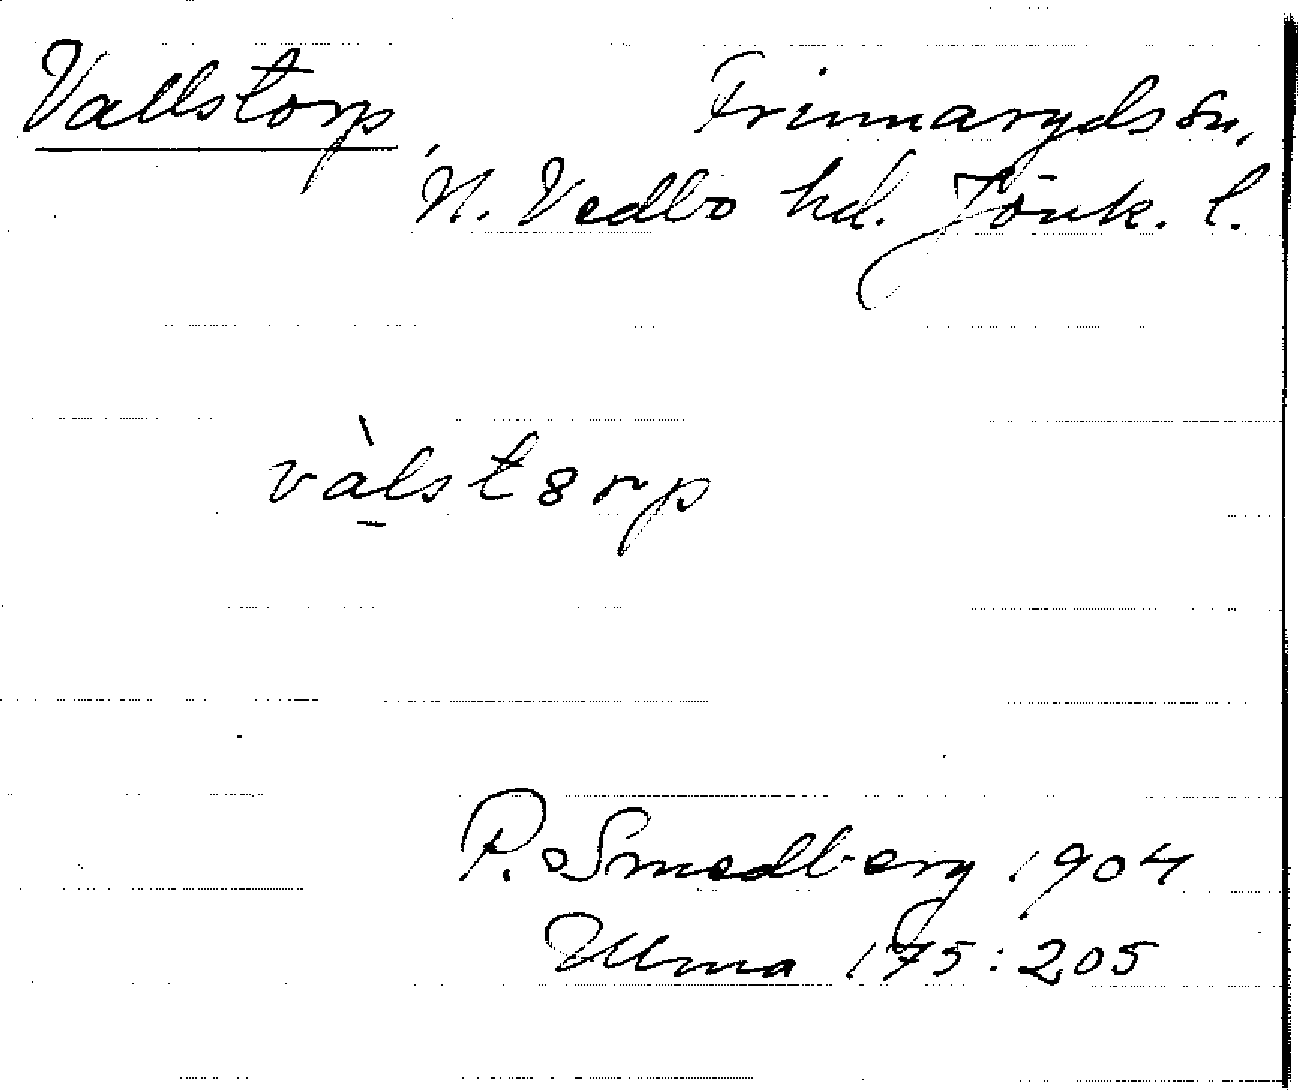 Vallstorp, Frinnaryds sn,
N. Vedbo hd. Jönk. l.
và̠lst8rp
P. Smedberg 1904
Ulma 175:205